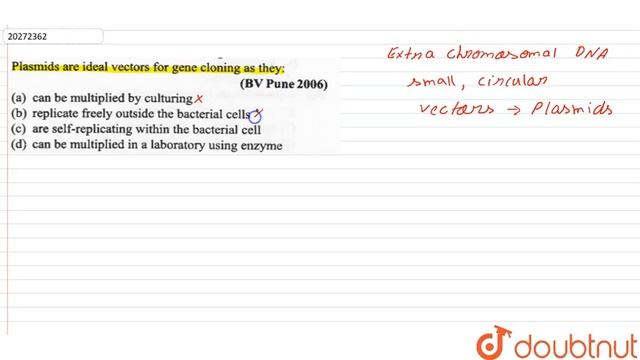 20272362
Plasmids are ideal vectors for gene cloning as they:
(BV Pune 2006)
(a) can be multiplied by culturing x
(b) replicate freely outside the bacterial cells x
(c) are self-replicating within the bacterial cell
(d) can be multiplied in a laboratory using enzyme
Extra chromosomal DNA
small, circular
vectors → Plasmids
doubtnut